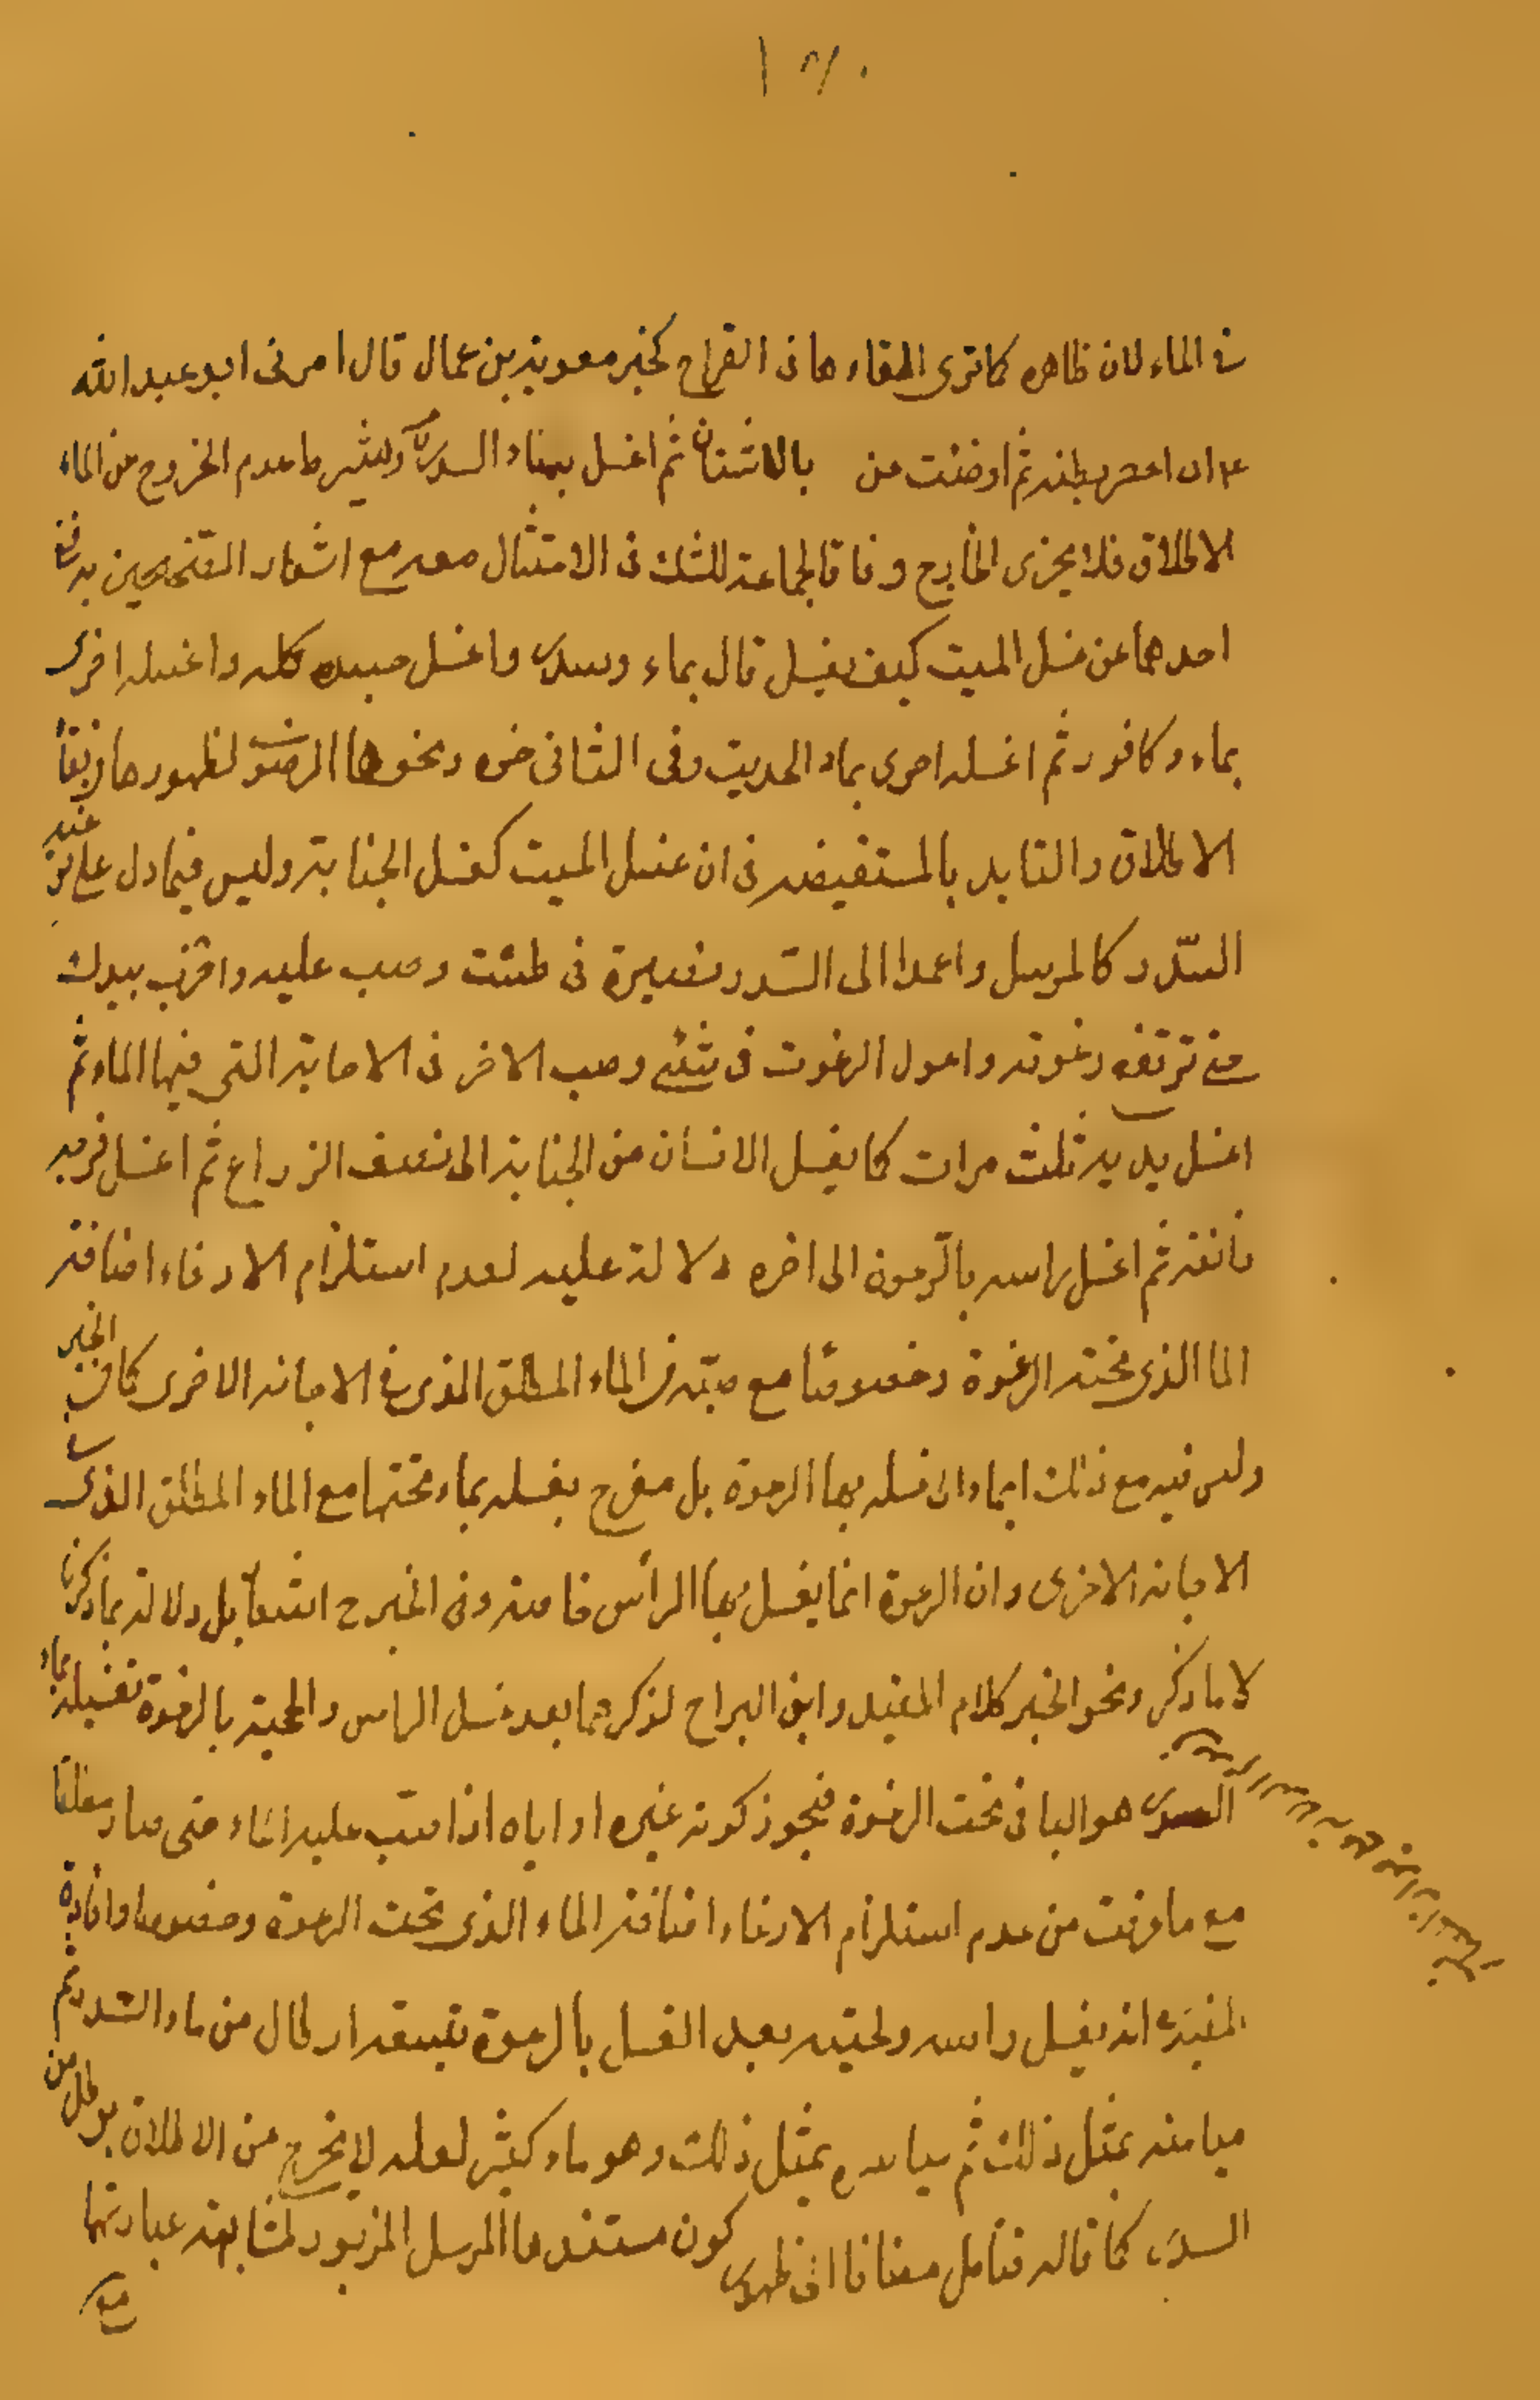 في الماء لان ظاهره كما ترى القاءهما في القراح كخبر معوية بن عمار قال امرنى ابو عبد الله
ع ان اعصر بطنه ثم اوضئه ثم بالاشنان ثم اغسل بماء السدر ويشترط عدم الخروج عن الماء
الاطلاق فلا يجزى الخارج وفاقا لجماعة للشك فى الامتثال معه مع اشعار الصحيحين به ففى
احدهما عن غسل الميت كيف يغسل قال بماء وسدر واغسل جسده كله واغسله اخرى
بماء وكافور ثم اغسله اخرى بماء الحديث وفى الثانى نحوه ونحوها الرضوى لظهورها فى بقاء
الاطلاق والتايد بالمستفيضه فى ان غسل الميت كغسل الجنابة وليس فيما دل على رغوة
السّدر كالمرسل واعمد الى السّدر فصيره فى طشت وصب عليه واضرب بيدك
حتى ترتفع رغوته واعزل الرغوة فى شئ وصب الاخر فى الاجانة التى فيها الماء ثم
اغسل يديه ثلث مرات كما يغسل الانسان من الجنابة الى نصف الذراع ثم اغسل فرجه
فانقه ثم اغسل راسه بالرغوة الى اخره دلالة عليه لعدم استلزام الارغاء اضافة
الما الذى تحته الرغوة وخصوصًا مع صبّه فى الماء المطلق الذى فى الاجانه الاخرى كما فى الخبر
وليس فيه مع ذلك ايماء الى غسله بهذا الرغوة بل مصرح بغسله بماء تحتها مع الماء المطلق الذى فى
الاجانه الاخرى وان الرغوة انما يغسل بها الراس خاصة وفى الخبرح اشعار بل دلالة بما ذكرنا
لا ما ذكر ونحو الخبر كلام المفيد وابن البراج لذكرهما بعد غسل الراس واللحية بالرغوة تغسيله بماء
السدر هو الباقى تحت الرغوة فيجوز كونه غيره او اياه اذا صب عليه الماء حتى صار مطلقا
مع ما عرفت من عدم استلزام الارغاء اضافة الماء الذى تحت الرغوة وخصوصا وافاد
المفيد انه يغسل راسه ولحيته بعد الغسل بالرغوة بتسعة ارطال من ماء السّدر ثم
ميامنه بمثل ذلك ثم مياسره بمثل ذلك وهو ماء كثير لعله لا يخرج عن الاطلاق برطل من
السدر كما قاله فتامل مضافا الى ظهور كون مستندهما المرسل المزبور لمشابهة عبارتهما